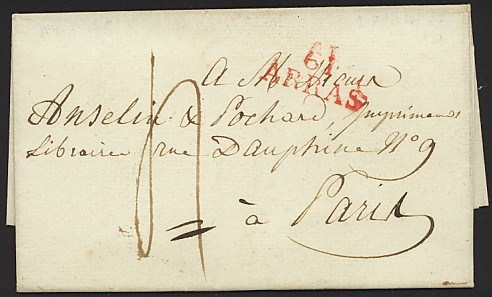 61
ARRAS
A Messieurs
Anselin & Pochard, Imprimeurs
Libraires rue Dauphine N° 9
à Paris